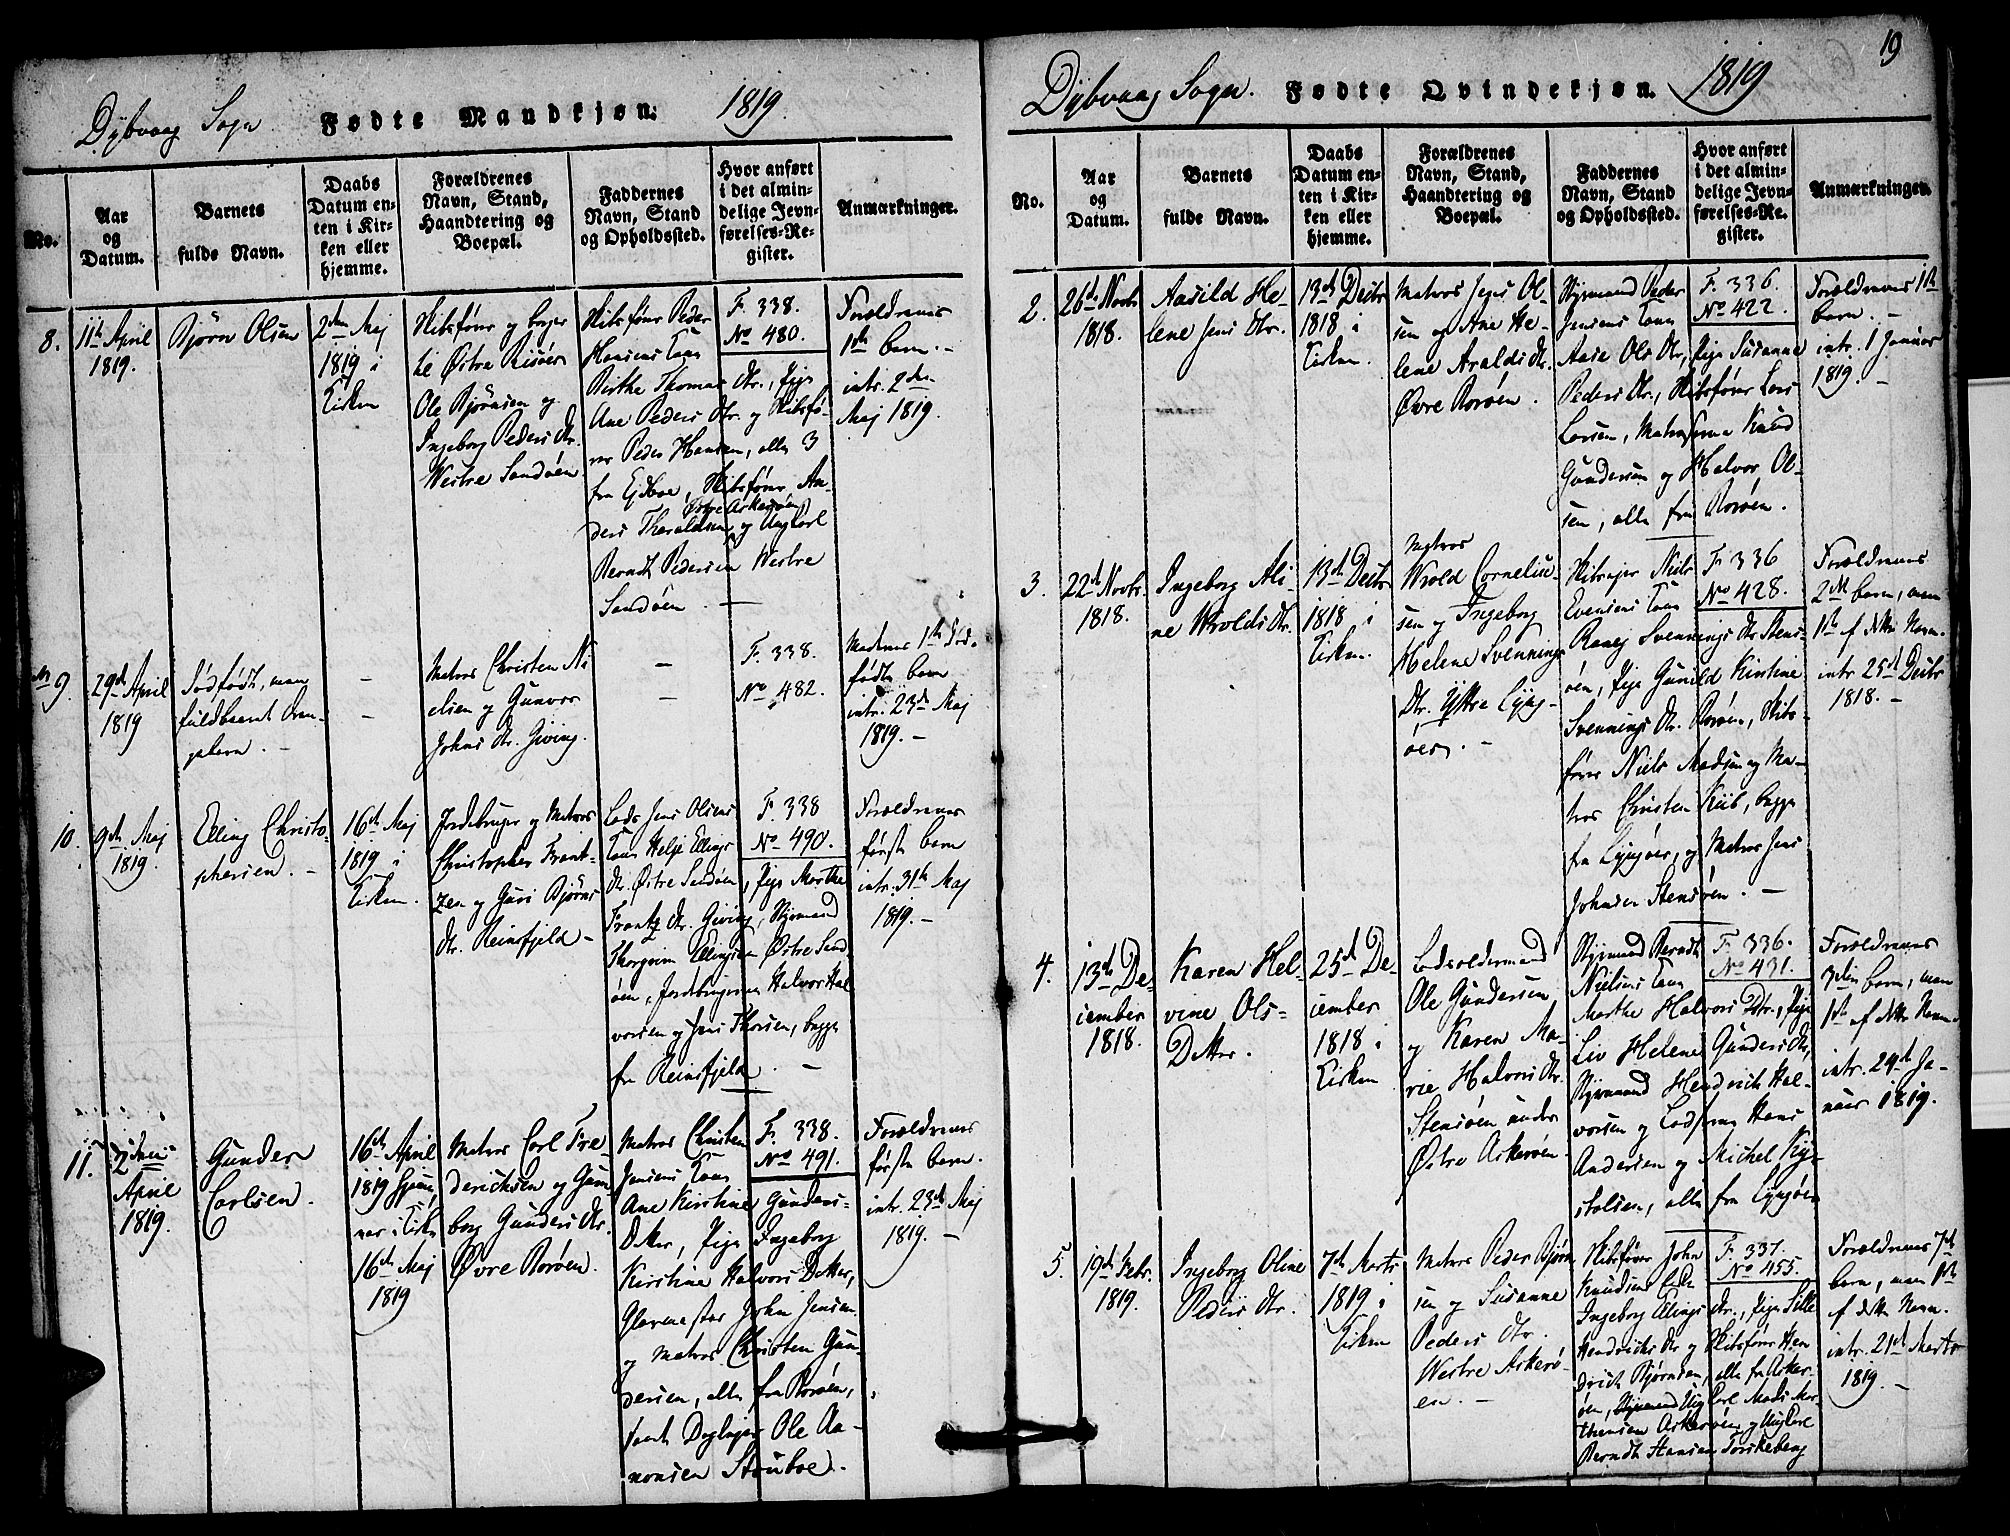 Dybvaag Sogn Fødte Mandkjøn. 1819.
No.
Aar
og
Datum.
Barnets
fulde Navn.
Daabs
Datum en-
ten i Kir-
ken eller
hjemme.
Forældrenes
Navn, Stand,
Haandtering og
Boepæl.
Faddernes
Navn, Stand
og Opholdssted.
Hvor anført
i det almin-
delige Jevn-
førelses-Re-
gister.
Anmærkninger.
8.
11th April
1819.
Bjørn Olsen
2den Maj
1819 i
Kirken
Skibsfører og borger
til Østre Risøer
Ole Bjørnsen og
Ingeborg Peders Dtr.
Westre Sandøen
Skibsfører Peder
Hansens Kone
Birthe Thomas Dtr., Pige
Ane Peders Dtr. og Skibsfø-
rer Peder Hansen, alle 3
fra Ejdboe, Skibsfører An-
Østre Askerøen
ders Tharaldsen og Ungkarl
Berndt Pedersen Westre
Sandøen.
F. 338.
No 480.
Forældrenes
1ste barn. -
intr. 2den
Maj 1819.
9.
29de April
1819
Dødfødt, men
fuldbaaret Dren-
gebarn. -
Matros Christen Ni-
elsen og Gunvor
Johns Dtr. Giving.
F. 338.
No 482.
Moderens 1ste Død-
fødte barn
intr. 23de Maj
1819. -
10.
9de Maj
1819.
Elling Christo-
phersen. -
16de Maj
1819 i
Kirken.
Jordebruger og Matros
Christopher Frant-
zen og Guri Bjørns
Dtr. Reinsfjeld -
Lods Jens Olsens
Kone Helje Ellings
Dtr. Østre Sandøen, Pige Marthe
Frantz Dtr. Giving, Styrmand
Thorgrim Ellingsen Østre Sand-
øen, Jordebrugerne Halvor Hal-
vorsen og Jens Thorsen, begge
fra Reinsfjeld. -
F. 338
No 490.
Forældrenes
første barn
intr. 31th Maj
1819. -
11.
2den
April
1819.
Gunder
Carlsen.
16de April
1819 hjem-
me i Kirken
16de Maj
1819
Matros Carl Fre-
dericksen og Gun-
borg Gunders Dtr.
Øvre Borøen.
Matros Christen
Jensens Kone
Ane Kirstine Gunders-
Dtter, Pige Ingeborg
Kirstine Halvors Dtter,
Glarmester John Jensen
og Matros Christen Gun-
dersen, alle fra Borøen,
samt Ole Aa-
nonsen Stouboe.
F. 338.
No 491.
Forældrenes
første barn.
intr. 23de Maj
1819. -
19
Dybvaag Sogn. Fødte Qvindekjøn. 1819
No.
Aar
og
Datum.
Barnets
fulde Navn.
Daabs
Datum en-
ten i Kir-
ken eller
hjemme.
Forældrenes
Navn, Stand,
Haandtering og
Boepæl.
Faddernes
Navn, Stand
og Opholdssted.
Hvor anført
i det almin-
delige Jevn-
førelses-Re-
gister.
Anmærkninger.
2.
26de Novbr
1818.
Aasild He-
lene Jens Dtr.
13de Decbr
1818 i
Kirken.
Matros Jens Ol-
sen og Ane He-
lene Aralds Dtr.
Øvre Borøen.
Styrmand Peder
Jensens Kone
Aase Ols Dtr, Pige Susanne
Peders Dtr., Skibsfører Lars
Larsen, Matroserne Knud
Gundersen og Halvor Ol-
sen, alle fra Borøen.
F. 336.
No 422.
Forældrenes 1ste
barn. -
intr. 1 Januar
1819. -
3.
22de Novbr.
1818.
Ingeborg Ali-
ne Wrolds Dtr.
13de Decbr
1818 i
Kirken.
Matros
Wrold Cornelius-
sen og Ingeborg
Helene Svennings
Dtr. Yttre Lyng-
øer. -
Skibstøjer Niels
Evensens Kone
Ranej Svennings Dtr. Stens-
øen, Pige Gunild Kirstine
Svennings Dtr. Borøen, Skibs-
fører Niels Madsen og Ma-
tros Christen Kiib, begge
fra Lyngøer, og Matros Jens
Johnsen Stensøen. -
F. 336
No 428.
Forældrenes
2det barn, men
1ste af dette Navn.
intr. 25de Decbr
1818. -
4.
13de De-
cember
1818.
Karen Hel-
vine Ols-
Datter.
25de De-
cember
1818 i
Kirken
Lodsoldermand
Ole Gundersen
og Karen Ma-
rie Halvors Dtr.
Stensøen under
Østre Askerøen.
Styrmand Berndt
Nielsens Kone
Marthe Halvors Dtr., Pige
Liv Helene Gunders Dtr,
Styrmand Hendrich Hal-
vorsen og Lodserne Hans
Andersen og Michel Ky-
stolsen, alle fra Lyngøer
F. 336.
No 431.
Forældrenes
3die barn, men
1ste af dette Navn.
intr. 24de Ja-
nuar 1819.
5.
19de Febr.
1819.
Ingeborg Oline
Peders Dtr.
7de Marts
1819 i
Kirken
Matros Peder Bjørn-
sen og Susanne
Peders Dtr.
Westre Askerø-
en. -
Skibsfører John
Knudsens Enke
Ingeborg Ellings Dtr., Pige Sille
Hendrichs Dtr. og Skibsfører Hen-
drich Bjørnsen, alle fra Asker-
øen, Ungkarl Mads Mor-
thensen Askerøen og Ungkarl
Berndt Hansen Torskeberg
F. 337.
No 455.
Forældrenes 7de
barn, men 1ste
af dette Navn.
intr. 21de Marts
1819. -